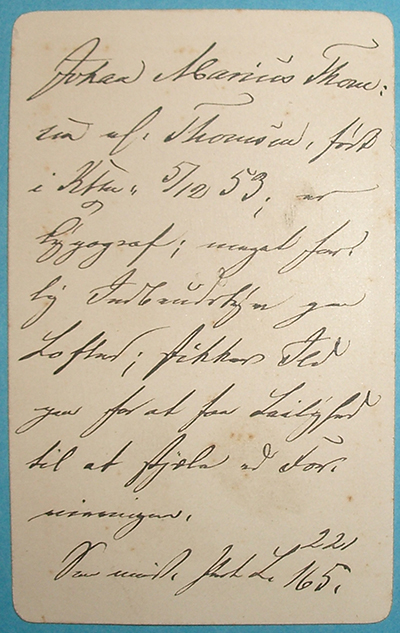 Johan Marius Thom-
sen ell. Thomsen, født
i Kbhn. 5/12 53, er
Typograf; meget far-
lig Indbrudstyv paa
Lofter; stikker Ild
paa for at faa Leilighed
til at stjæle ved For-
virringen.
221
165.